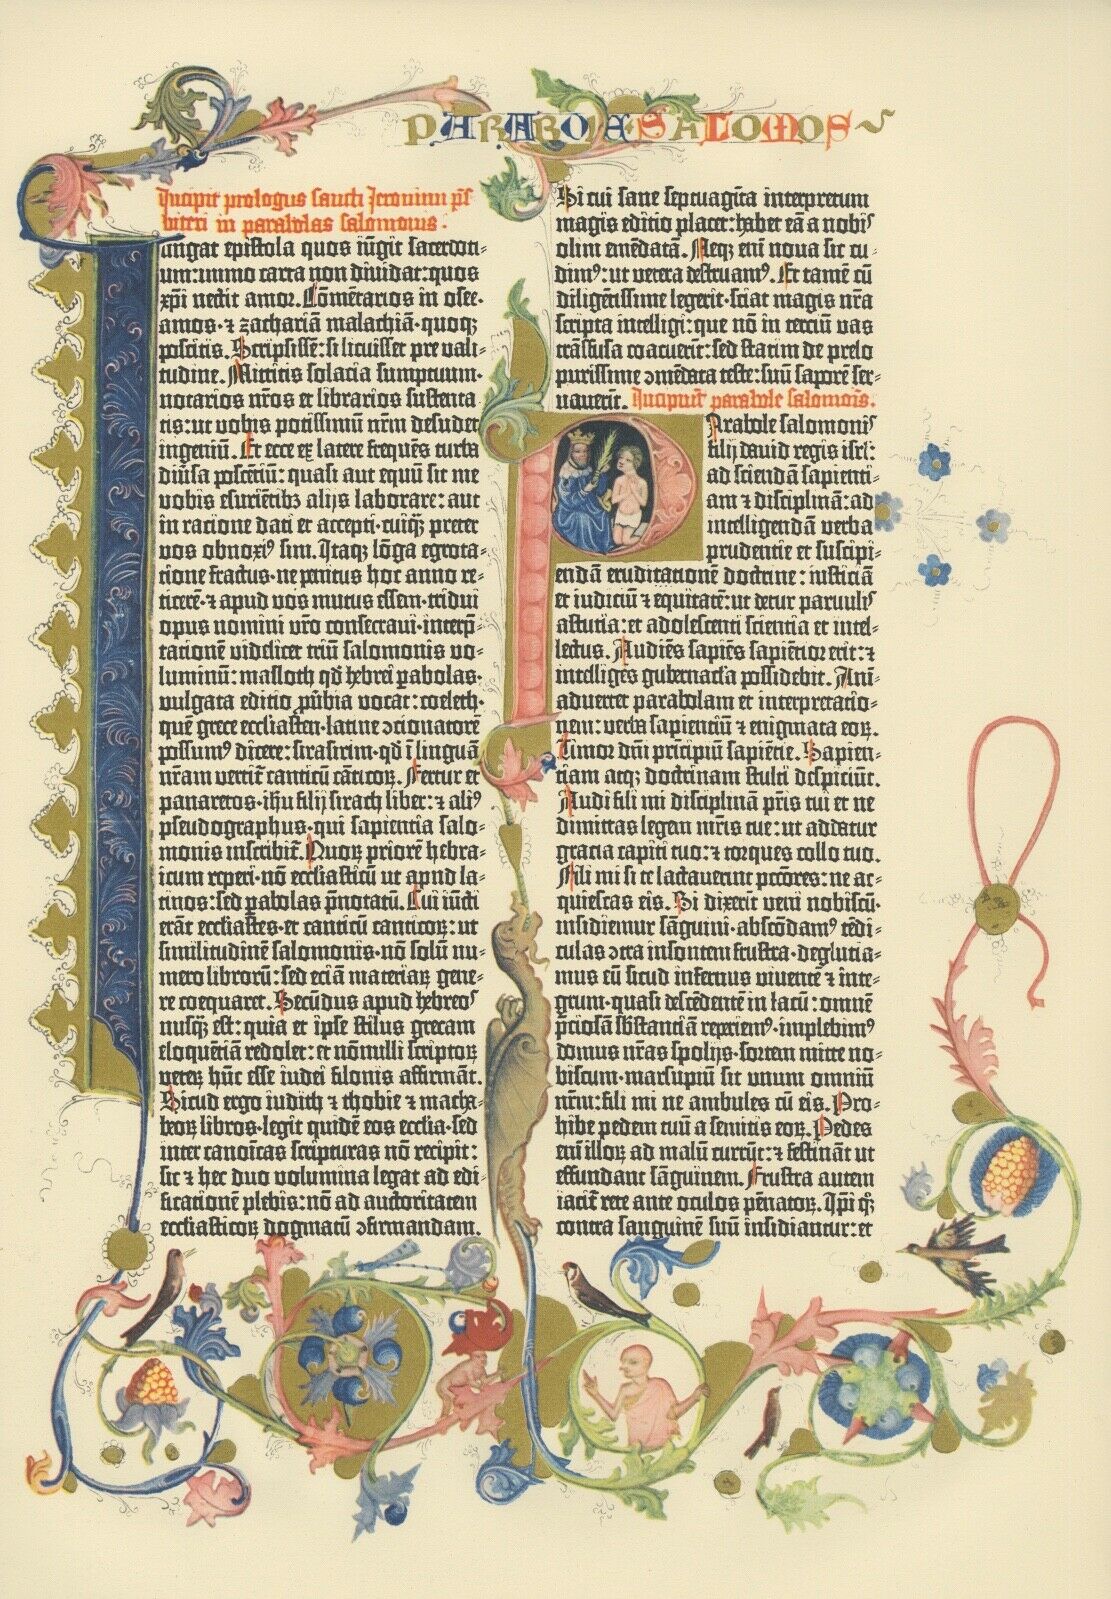 PARABOLE SALOMOIS
Incipit prologus sancti Jeronimi p̄s
biteri in parabolas salomonis .
Iungat epistola quos iūgit sacerdoti-
um:immo carta non dividat:quos
xp̄i nectit amor. Cōmētarios in osee.
amos·⁊ zachariā malachiā·quoqꝫ
poscitis. Scripsissē:si licuisset pre vali-
tudine. Mittitis solacia sumptuum·
notarios nr̄os et librarios sustenta
tis:ut vobis potissimū nr̄m desudet
ingeniū. Et ecce ex latere frequēs turba
diūsa poscētiū: quasi aut equū sit me
vobis esuriētibꝫ alijs laborare: aut
in racione dati et accepti·cuiqꝫ preter
vos obnoxiꝰ sim. Itaqꝫ lōga egrota-
tione fractus·ne penitus hoc anno re-
ticerē·⁊ apud vos mutus essem·tridui
opus nomini vr̄o consecravi·interp̄-
tationē videlicet triū salomonis vo-
luminū: masloth qd̄ hebrei ꝑabolas·
vulgata editio pūbia vocat: coeleth·
quē grece ecclīasten·latine ꝯcionatorē
possumꝰ dicere: sirasirim·qd̄ ī linguā
nr̄am vertit̄ canticū cāticoꝝ. Fertur et
panaretos·ihū filij sirach liber: ⁊ aliꝰ
pseudographus·qui sapientia salo-
monis inscribit̄. Quoꝝ priorē hebra-
icum reperi·nō ecclīasticū ut apud la-
tinos:sed ꝑabolas p̄notatū. Cui iūcti
erāt ecclīastes·et canticū canticoꝝ: ut
similitudinē salomonis·nō solū nu-
mero librorū: sed eciā materiaꝝ gene-
re coequaret. Secūdus apud hebreos
nusqꝫ est: quia et ipse stilus grecam
eloquētiā redolet: et nōnulli scriptoꝝ
veteꝝ hūc esse iudei filonis affirmāt.
Sicud ergo iudith ⁊ thobie ⁊ macha-
beoꝝ libros·legit quidē eos ecclīa·sed
inter canoīcas scripturas nō recipit:
sic ⁊ hec duo volumina legat ad edi-
ficationē plebis: nō ad auctoritatem
ecclīasticoꝝ dogmatū ꝯfirmandam.
Si cui sane septuagīta interpretum
magis editio placet: habet eā a nobis
olim emēdatā. Neqꝫ enī nova sic cu-
dimꝰ: ut vetera destruamꝰ. Et tamē cū
diligētissime legerit·sciat magis nr̄a
scripta intelligi: que nō in terciū vas
trāsfusa coacuerīt: sed statim de prelo
purissime ꝯmēdata teste: suū saporē ser-
vaverīt. Incipiūt parabole salomōis.
Parabole salomonis
filij david regis isrl̄:
ad sciendā sapienti-
am ⁊ disciplinā: ad
intelligendā verba
prudentie et suscipi-
endā eruditationē doctrine: iusticiā
et iudiciū ⁊ equitatē: ut detur parvulis
astutia: et adolescenti scientia et intel-
lectus. Audiēs sapiēs sapientior erit: ⁊
intelliges gubernacl̄a possidebit. Ani-
advertet parabolam et interpretatio-
nem: verba sapientiū ⁊ enigmata eoꝝ.
Timor dn̄i principiū sapiētie. Sapien-
tiam atqꝫ doctrinam stulti despiciūt.
Audi fili mi disciplinā pr̄is tui et ne
dimittas legem mr̄is tue: ut addatur
gracia capiti tuo: ⁊ torques collo tuo.
Fili mi si te lactaverint pctōres: ne ac-
quiescas eis. Si dixerit veni nobiscū·
insidiemur sāguini·abscōdamꝰ tēdi-
culas ꝯtra insontem frustra·deglutia-
mus eū sicud infernus viventē ⁊ inte-
grum·quasi descēdentē in lacū: omnē
p̄ciosā sb̄stantiā repriemꝰ·implebimꝰ
domus nr̄as spolijs·sortem mitte no-
biscum·marsupiū sit unum omniū
nr̄m: fili mi ne ambules cū eis. Pro-
hibe pedem tuū a semitis eoꝝ. Pedes
enī illoꝝ ad malū currūt: ⁊ festināt ut
effundant sāguinem. Frustra autem
iacit̄ rete ante oculos pēnatoꝝ. Ip̄i qꝫ
contra sanguinē suū insidiantur: et